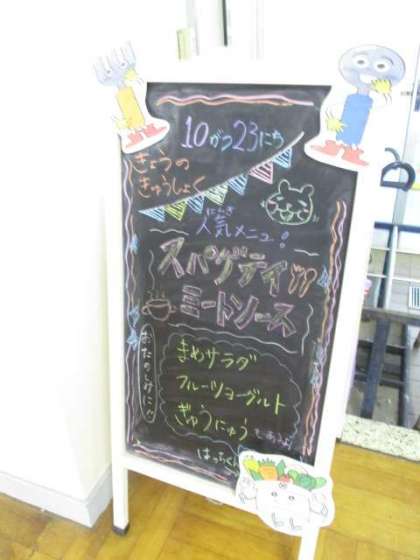 10がつ23にち
きょうの
きゅうしょく
にんき
人気メニュー!
スパゲティ
ミートソース
おたのしみに
まめサラダ
フルーツヨーグルト
ぎゅうにゅう
はっちくん